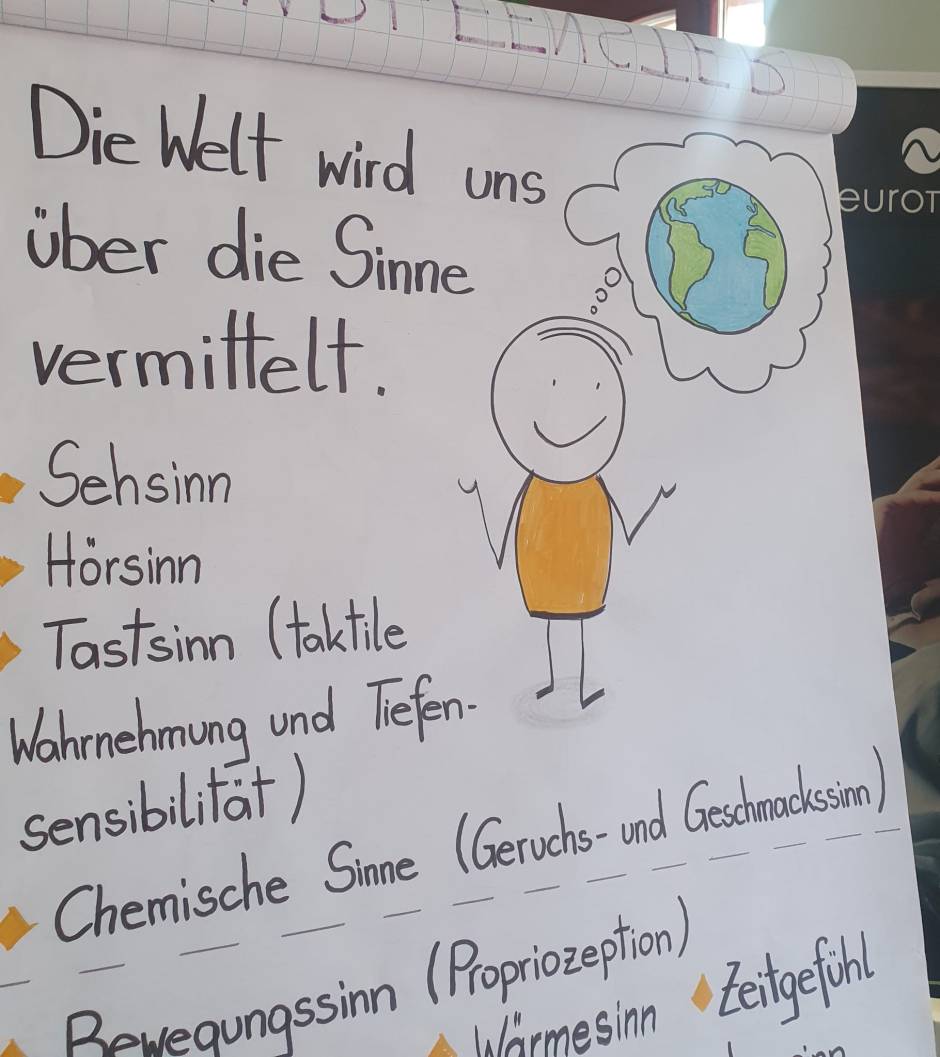 Die Welt wird uns
über die Sinne
vermittelt.
Sehsinn
Hörsinn
Tastsinn (taktile
Wahrnehmung und Tiefen-
sensibilität)
Chemische Sinne (Geruchs- und Geschmackssinn)
Bewegungssinn (Propriozeption)
Wärmesinn
Zeitgefühl